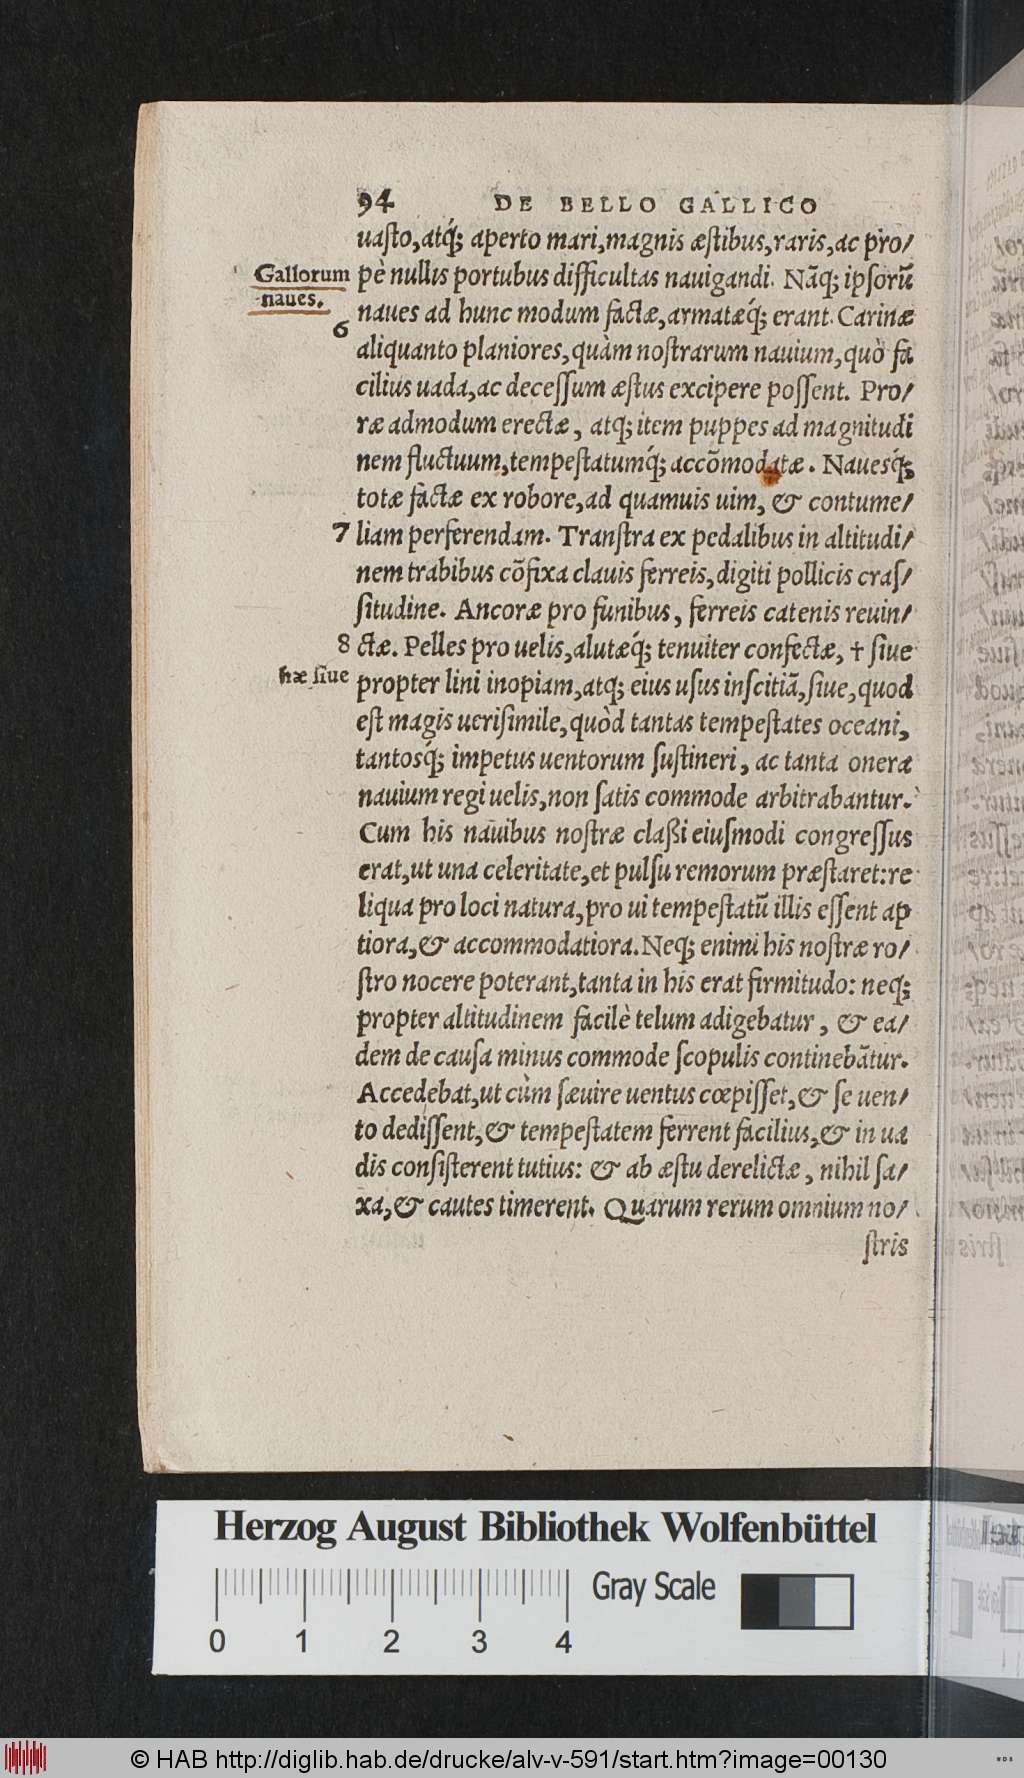 94 DE BELLO GALLICO
uaſto,atq́; aperto mari,magnis æſtibus,raris,ac pro/
Gallorum naues.
pè nullis portubus difficultas nauigandi. Nãq; ipſorũ
6
naues ad hunc modum factæ,armatæq́; erant. Carinæ
aliquanto planiores,quàm noſtrarum nauium,quò fa
cilius uada,ac deceſſum æſtus excipere poſſent. Pro/
ræ admodum erectæ, atq; item puppes ad magnitudi
nem fluctuum,tempeſtatumq́; accõmodatæ. Nauesq́;
totæ factæ ex robore,ad quamuis uim, & contume/
7 liam perferendam. Tranſtra ex pedalibus in altitudi/
nem trabibus cõfixa clauis ferreis,digiti pollicis craſ/
ſitudine. Ancoræ pro funibus, ferreis catenis reuin/
8 ctæ. Pelles pro uelis,alutæq́; tenuiter confectæ, † ſiue
hæ ſiue
propter lini inopiam,atq; eius uſus inſcitiã,ſiue,quod
eſt magis ueriſimile,quòd tantas tempeſtates oceani,
tantosq́; impetus uentorum ſuſtineri, ac tanta onera
nauium regi uelis,non ſatis commode arbitrabantur.
Cum his nauibus noſtræ claßi eiuſmodi congreſſus
erat,ut una celeritate,et pulſu remorum præſtaret:re
liqua pro loci natura,pro ui tempeſtatũ illis eſſent ap
tiora,& accommodatiora.Neq; enim his noſtræ ro/
ſtro nocere poterant,tanta in his erat firmitudo: neq;
propter altitudinem facilè telum adigebatur, & ea/
dem de cauſa minus commode ſcopulis continebãtur.
Accedebat,ut cùm ſæuire uentus cœpiſſet,& ſe uen/
to dediſſent,& tempeſtatem ferrent facilius,& in ua
dis conſiſterent tutius: & ab æſtu derelictæ, nihil ſa/
xa,& cautes timerent. Quarum rerum omnium no/
ſtris
Herzog August Bibliothek Wolfenbüttel
Gray Scale
0 1 2 3 4
© HAB http://diglib.hab.de/drucke/alv-v-591/start.htm?image=00130